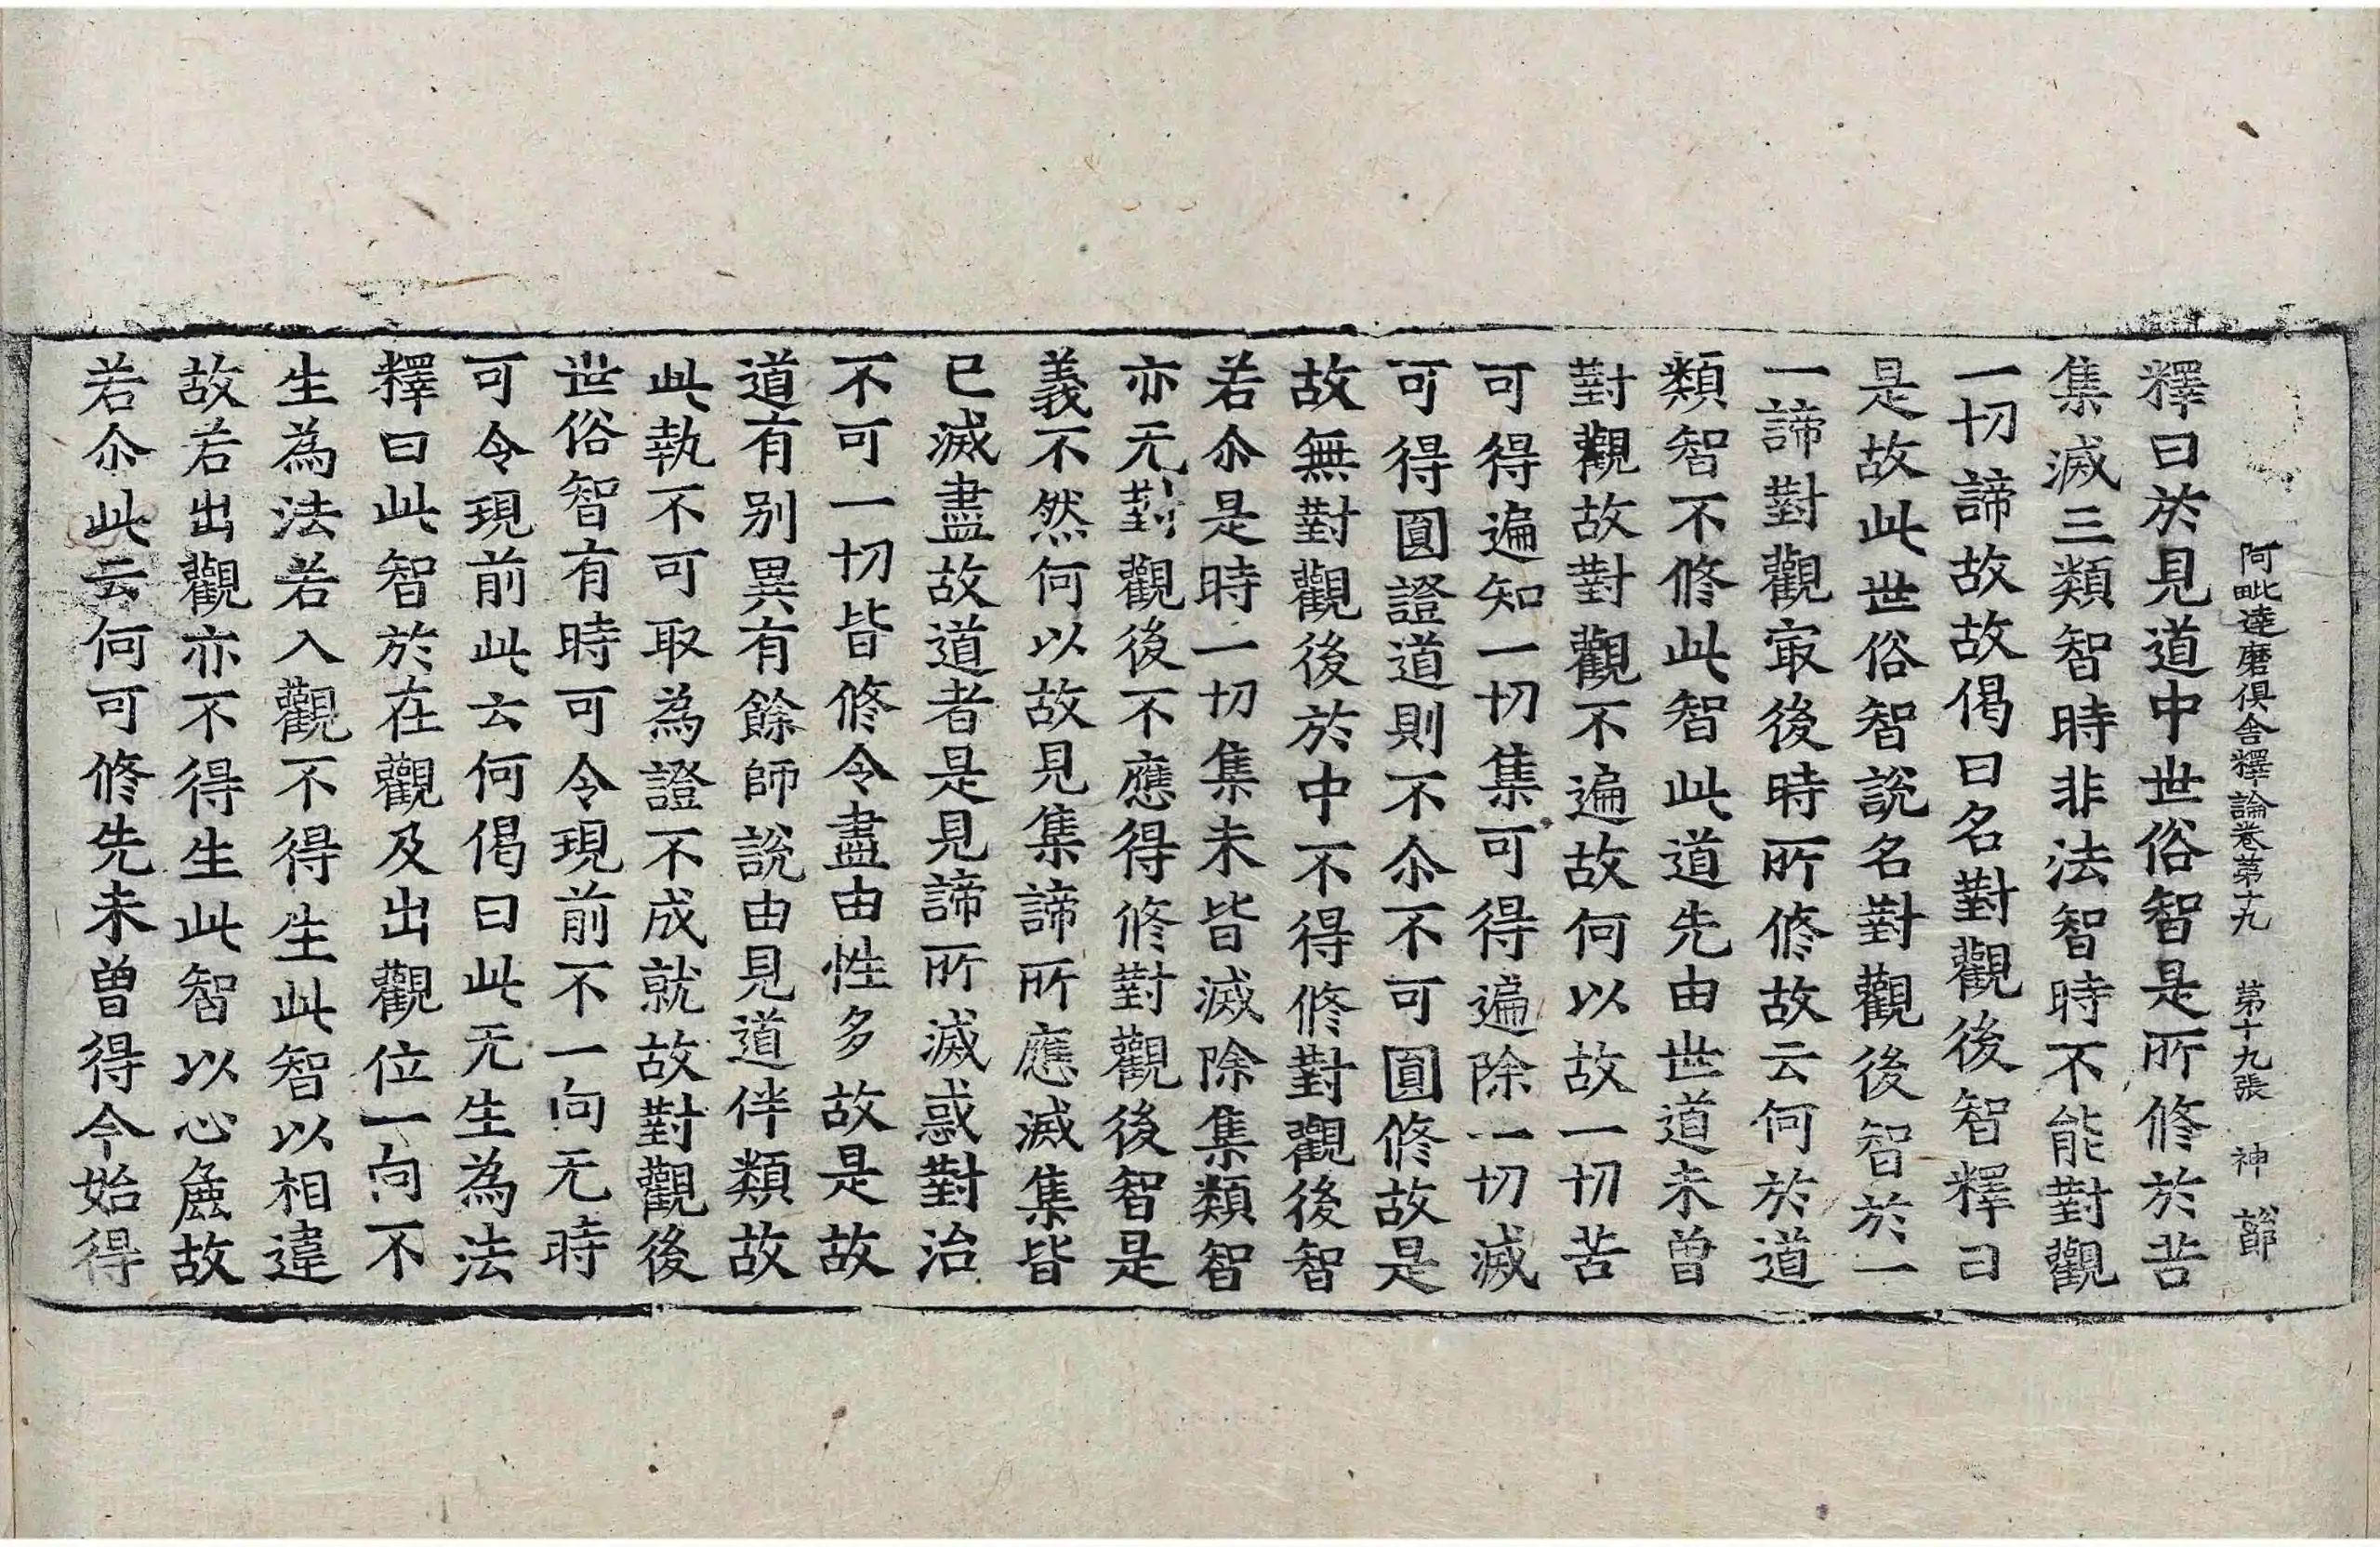 阿毗達磨俱舍釋論卷第十九　第十九張　神
釋曰於見道中世俗智是所修於苦
集滅三類智時非法智時不能對觀
一切諦故故偈曰名對觀後智釋曰
是故此世俗智說名對觀後智於一
一諦對觀㝡後時所修故云何於道
類智不修此智此道先由世道未曾
對觀故對觀不遍故何以故一切苦
可得遍知一切集可得遍除一切滅
可得圓證道則不尒不可圓修故是
故無對觀後於中不得修對觀後智
若尒是時一切集未皆滅除集類智
亦无對觀後不應得修對觀後智是
義不然何以故見集諦所應滅集皆
已滅盡故道者是見諦所滅惑對治
不可一切皆修令盡由性多故是故
道有別異有餘師說由見道伴類故
此執不可取為證不成就故對觀後
世俗智有時可令現前不一向无時
可令現前此云何偈曰此无生為法
釋曰此智於在觀及出觀位一向不
生為法若入觀不得生此智以相違
故若出觀亦不得生此智以心麁故
若尒此云何可修先未曾得今始得